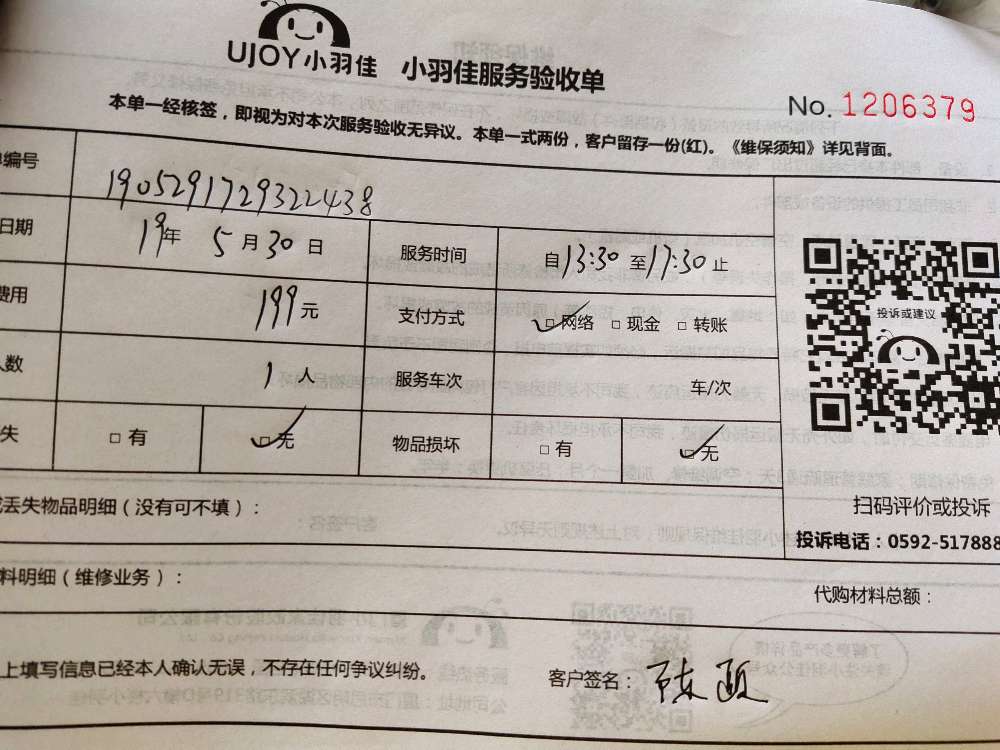 UJOY小羽佳 小羽佳服务验收单
No. 1206379
本单一经核签，即视为对本次服务验收无异议。本单一式两份，客户留存一份(红)。《维保须知》详见背面。
编号 1905291729322438
日期 19年 5月30日 服务时间 自13:30至17:30止
费用 199元 支付方式 □网络 □现金 □转账
人数 1人 服务车次 车/次
失 □有 □无 物品损坏 □有 □无
投诉或建议
扫码评价或投诉
丢失物品明细（没有可不填）：
投诉电话：0592-517888
料明细（维修业务）：
代购材料总额：
上填写信息已经本人确认无误，不存在任何争议纠纷。
客户签名：陈